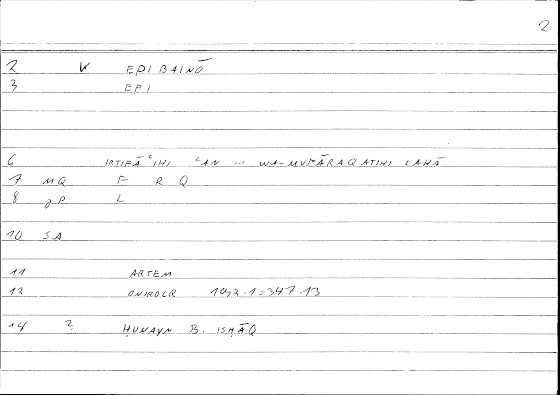 2
2 V EPIBAINŌ
3 EPI
6 IRTIFĀʿIHI ʿAN ... WA-MUFĀRAQATIHI LAHĀ
7 MQ F R Q
8 gP L
10 SA
11 ARTEM
12 ONIROCR 192.1=347.13
14 ? ḤUNAYN B. ISḤĀQ